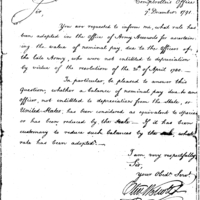 Comptroller's Office
7 December 1791
Sir,
You are requested to inform me, what rule has
been adopted in the office of Army Accounts for ascer-
taining the value of nominal pay, due to the Officers of
the late Army, who were not entitled to depreciation
by virtue of the resolution of the 10th of April 1780.
In particular, be pleased to answer this
Question; whether a balance of nominal pay due to an
officer, not entitled to depreciation from the State, or
United States, has been considered as equivalent to specie
or has been reduced by the scale — If it has been
customary to reduce such balances by the scale, what
rule has been adopted.
I am, very respectfully
Sir,
your Obed. Servt.